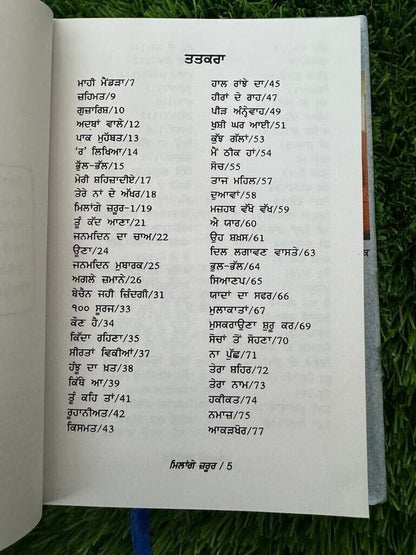 ਤਤਕਰਾ
ਮਾਹੀ ਮੈਂਡੜਾ/7
ਜ਼ਹਿਮਤ/9
ਗੁਜ਼ਾਰਿਸ਼/10
ਅਦਬਾਂ ਵਾਲੇ/12
ਪਾਕ ਮੁਹੱਬਤ/13
'ਰ' ਲਿਖਿਆ/14
ਭੁੱਲ-ਭੱਲ/15
ਮੇਰੀ ਸ਼ਹਿਜ਼ਾਦੀਏ/17
ਤੇਰੇ ਨਾਂ ਦੇ ਅੱਖਰ/18
ਮਿਲਾਂਗੇ ਜ਼ਰੂਰ-1/19
ਤੂੰ ਕੱਦ ਆਣਾ/21
ਜਨਮਦਿਨ ਦਾ ਚਾਅ/22
ਊਣਾ/24
ਜਨਮਦਿਨ ਮੁਬਾਰਕ/25
ਅਗਲੇ ਜ਼ਮਾਨੇ/26
ਬੇਚੈਨ ਜਹੀ ਜ਼ਿੰਦਗੀ/31
੧੦੦ ਸੂਰਜ/33
ਕੌਣ ਹੈ/34
ਕਿੱਦਾ ਰਹਿਣਾ/35
ਸੀਰਤਾਂ ਵਿਕੀਆਂ/37
ਹੰਝੂ ਦਾ ਖ਼ਤ/38
ਕਿੱਥੇ ਆ/39
ਤੂੰ ਕਹਿ ਤਾਂ/41
ਰੂਹਾਨੀਅਤ/42
ਕਿਸਮਤ/43
ਹਾਲ ਰਾਂਝੇ ਦਾ/45
ਹੀਰਾਂ ਦੇ ਰਾਹ/47
ਪੀੜ ਅੰਨ੍ਹੇਵਾਹ/49
ਖੁਸ਼ੀ ਘਰ ਆਈ/51
ਕੁੱਝ ਗੱਲਾਂ/53
ਮੈਂ ਠੀਕ ਹਾਂ/54
ਸੋਚ/55
ਤਾਜ ਮਹਿਲ/57
ਦੁਆਵਾਂ/58
ਮਜ਼ਹਬ ਵੱਖੋ ਵੱਖ/59
ਐ ਯਾਰ/60
ਉਹ ਸ਼ਖ਼ਸ/61
ਦਿਲ ਲਗਾਵਣ ਵਾਸਤੇ/63
ਭੁਲ-ਭੱਲ/64
ਸਿਆਣਪ/65
ਯਾਦਾਂ ਦਾ ਸਫਰ/66
ਮੁਲਾਕਾਤਾਂ/67
ਮੁਸਕਰਾਉਣਾ ਸ਼ੁਰੂ ਕਰ/69
ਸੋਚਾਂ ਤੋਂ ਸੋਹਣਾ/70
ਨਾ ਪੁੱਛ/71
ਤੇਰਾ ਸ਼ਹਿਰ/72
ਤੇਰਾ ਨਾਮ/73
ਹਕੀਕਤ/74
ਨਮਾਜ਼/75
ਆਕੜਖੋਰ/77
ਮਿਲਾਂਗੇ ਜ਼ਰੂਰ / 5